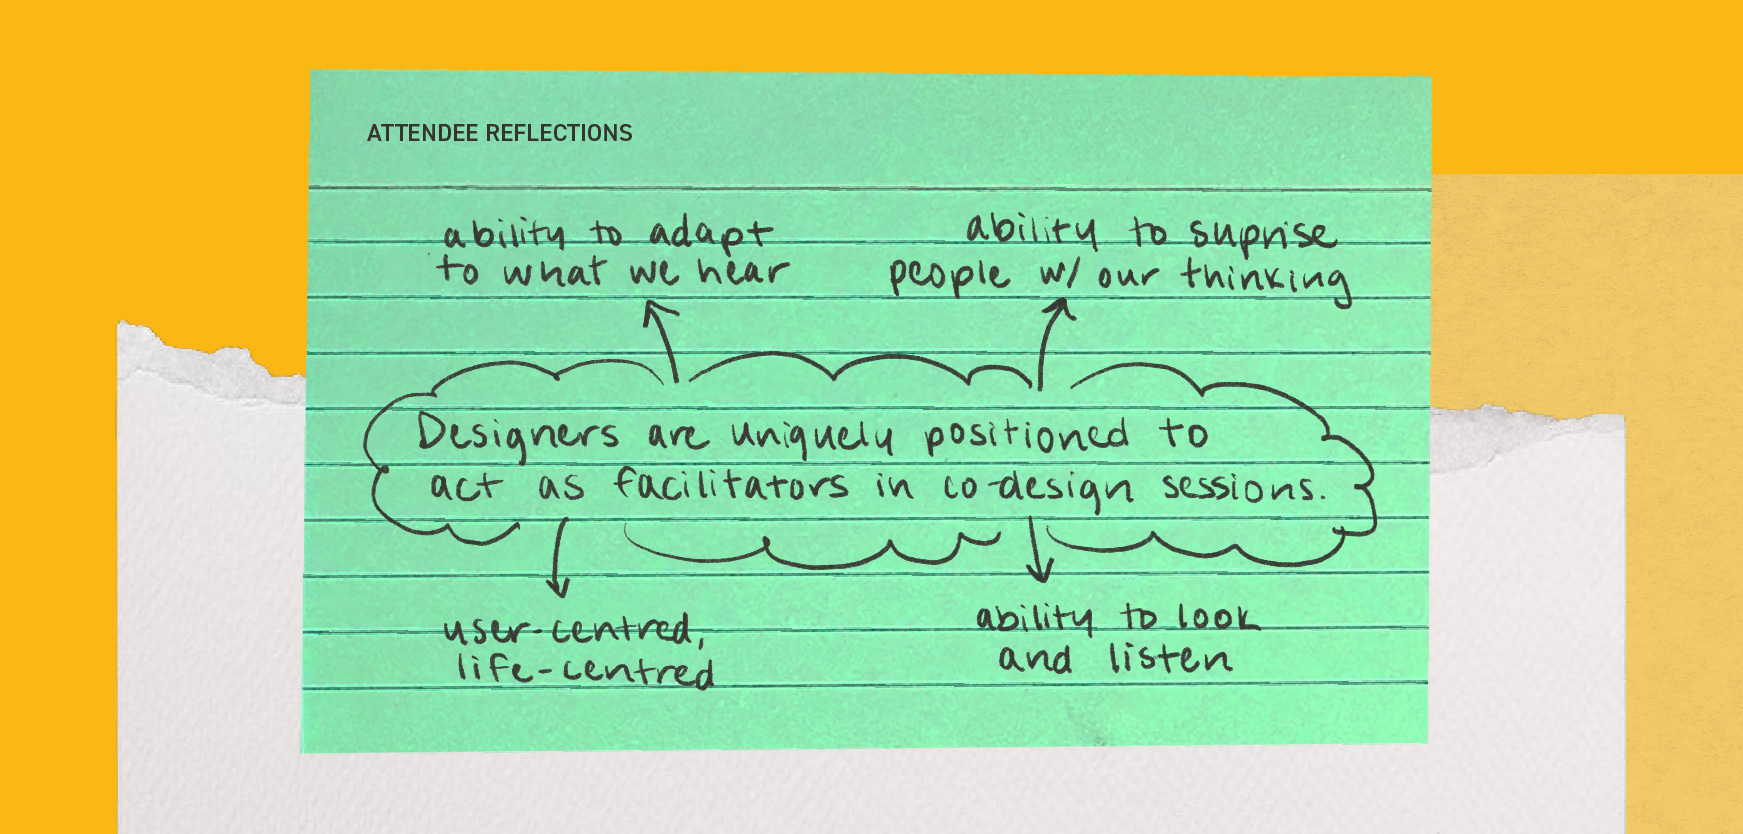 ATTENDEE REFLECTIONS
ability to adapt
to what we hear
ability to suprise
people w/ our thinking
Designers are uniquely positioned to
act as facilitators in co-design sessions.
user-centred,
life-centred
ability to look
and listen